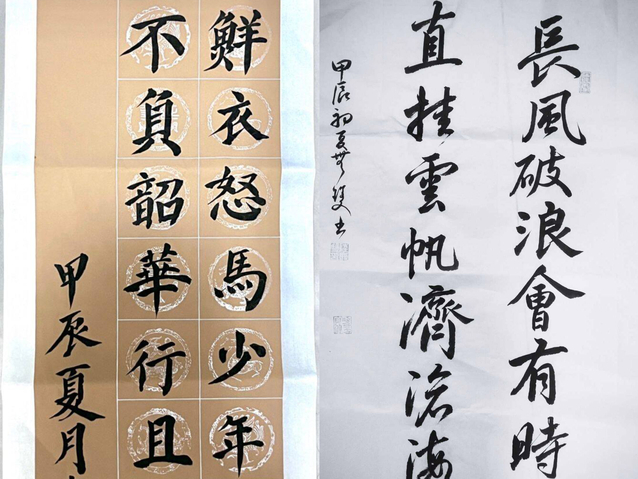 鮮衣怒馬少年
不負韶華行且
甲辰夏月
長風破浪會有時
直挂雲帆濟滄海
甲辰初夏